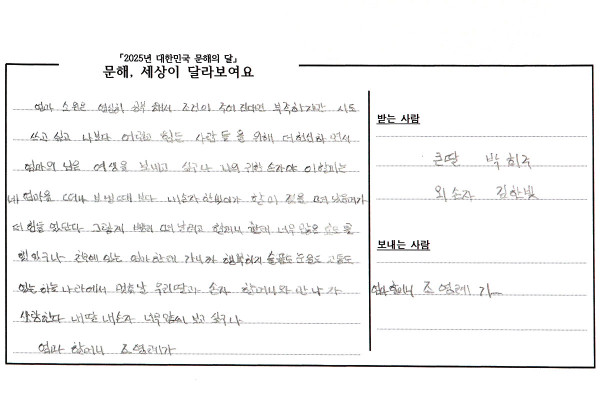 『2025년 대한민국 문해의 달』
문해, 세상이 달라보여요
엄마 소원은 열심히 공부 해서 조건이 주어 진다면 부족하지만 시도
쓰고 싶고 나보다 어렵고 힘든 사람들을 위해 더 헌신하면서
엄마의 남은 여생을 보내고 싶구나 나의 귀한 손자야 이 할미는
네 엄마를 떠나 보낼때 보다 내손자 한빛이가 할미 곁을 떠나
더 힘들었단다 그렇게 빨리 떠나려고 할머니 한테 너무 많은
했었구나 곁에 있는 엄마한테 가니까 행복하지 슬픔도 눈물도 고통도
없는 하늘나라에서 먼훗날 우리딸과 손자 할머니와 만나자
사랑한다 내딸 내손자 너무많이 보고싶구나
엄마 할머니 조영례가
받는 사람
큰딸 박희주
외손자 김한빛
보내는 사람
엄마 할머니 조영례가